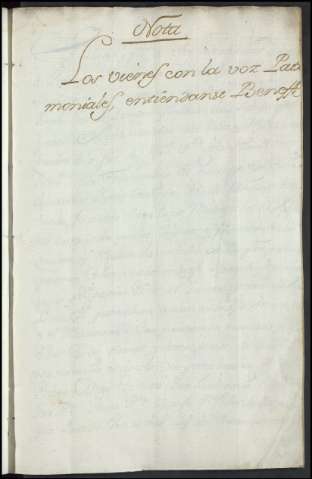 Nota
Los vienes con la voz Patr
moniales, entiendanse Beneff